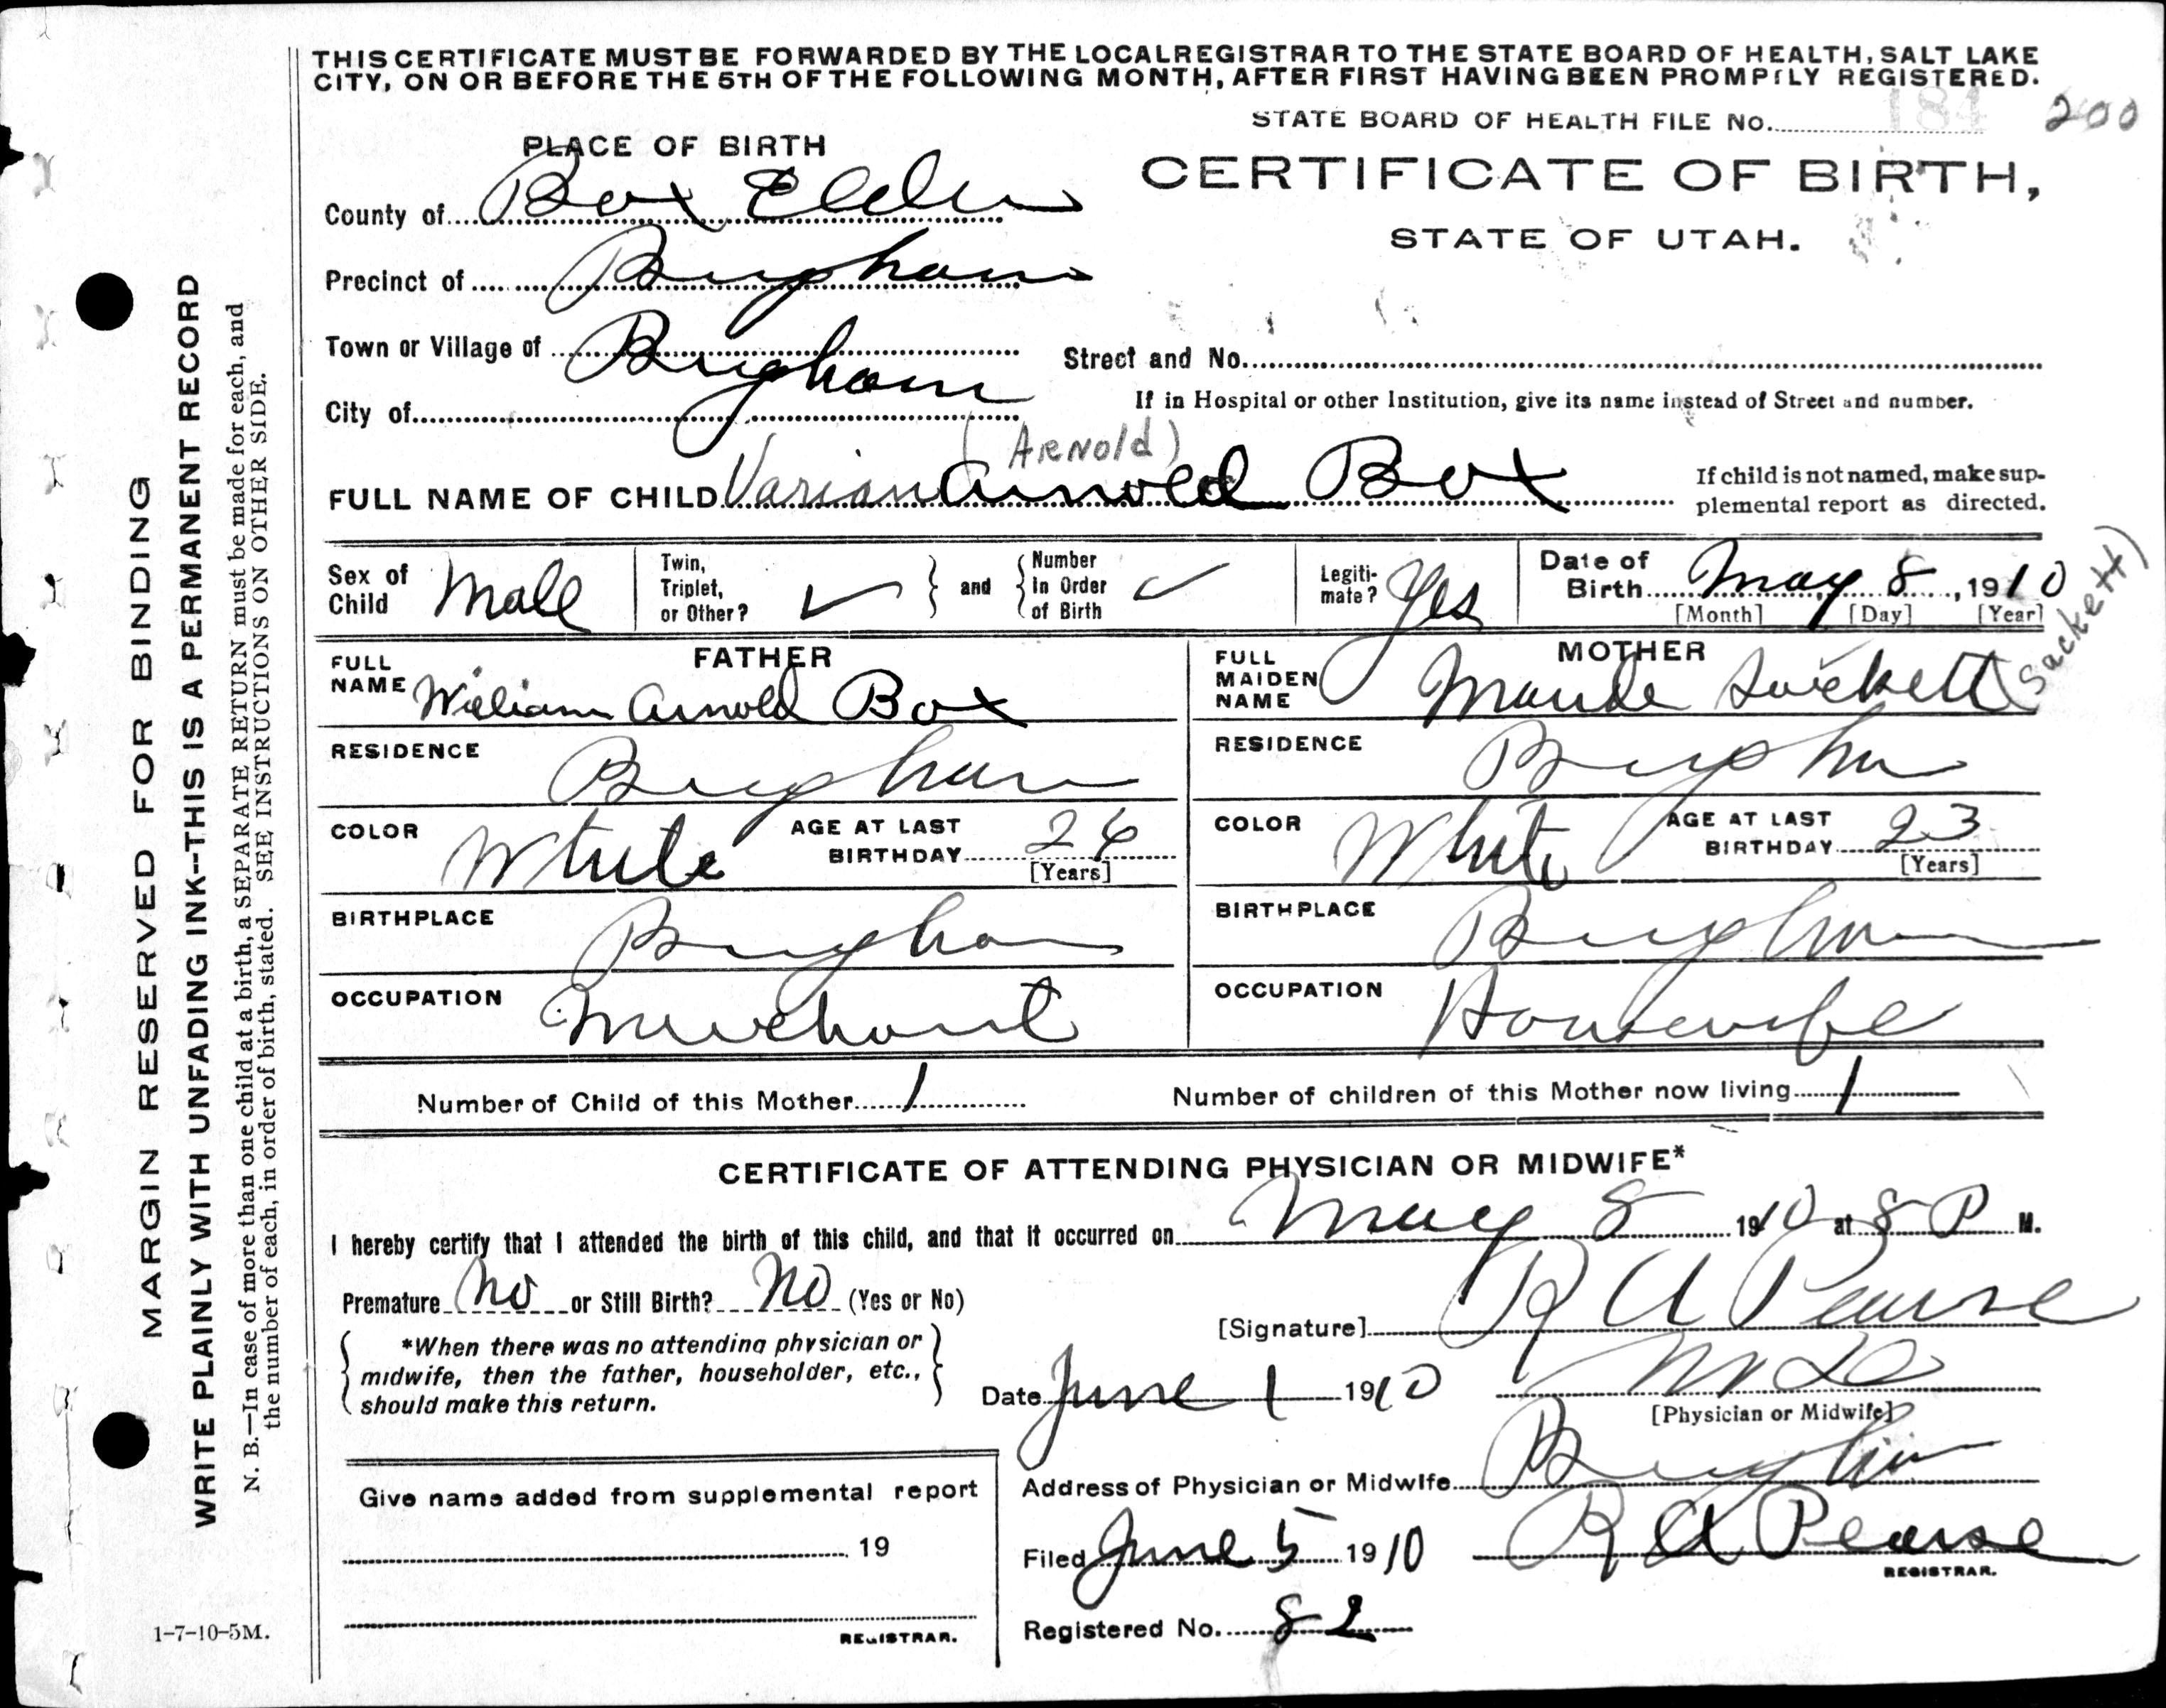 THIS CERTIFICATE MUST BE FORWARDED BY THE LOCAL REGISTRAR TO THE STATE BOARD OF HEALTH, SALT LAKE
CITY, ON OR BEFORE THE 5TH OF THE FOLLOWING MONTH, AFTER FIRST HAVING BEEN PROMPTLY REGISTERED.
STATE BOARD OF HEALTH FILE No. 184 200
PLACE OF BIRTH
CERTIFICATE OF BIRTH,
STATE OF UTAH.
County of Box Elder
Precinct of Brigham
Town or Village of Brigham
Street and No.
City of
If in Hospital or other Institution, give its name instead of Street and number.
(Arnold)
FULL NAME OF CHILD Varian Arnold Box
If child is not named, make sup-
plemental report as directed.
Sex of Child Male
Twin, Triplet, or Other? ✓ and Number In Order of Birth ✓
Legiti-mate? Yes
Date of Birth May 8, 1910
[Month] [Day] [Year]
FATHER
FULL NAME William Arnold Box
RESIDENCE Brigham
COLOR White AGE AT LAST BIRTHDAY 26
[Years]
BIRTHPLACE Brigham
OCCUPATION Merchant
MOTHER
FULL MAIDEN NAME Maude Sackett (Sackett)
RESIDENCE Brigham
COLOR White AGE AT LAST BIRTHDAY 23
[Years]
BIRTHPLACE Brigham
OCCUPATION Housewife
Number of Child of this Mother 1 Number of children of this Mother now living 1
CERTIFICATE OF ATTENDING PHYSICIAN OR MIDWIFE*
I hereby certify that I attended the birth of this child, and that it occurred on May 8 1910 at 8 P M.
Premature No or Still Birth? No (Yes or No)
[Signature] R A Pearse
*When there was no attending physician or
midwife, then the father, householder, etc.,
should make this return.
Date June 1 1910 M D
[Physician or Midwife]
Address of Physician or Midwife Brigham
Give name added from supplemental report
19
REGISTRAR.
Filed June 5 1910 R A Pearse
REGISTRAR.
Registered No. 82
1-7-10-5M.
MARGIN RESERVED FOR BINDING
WRITE PLAINLY WITH UNFADING INK--THIS IS A PERMANENT RECORD
N. B.—In case of more than one child at a birth, a SEPARATE RETURN must be made for each, and
the number of each, in order of birth, stated. SEE INSTRUCTIONS ON OTHER SIDE.